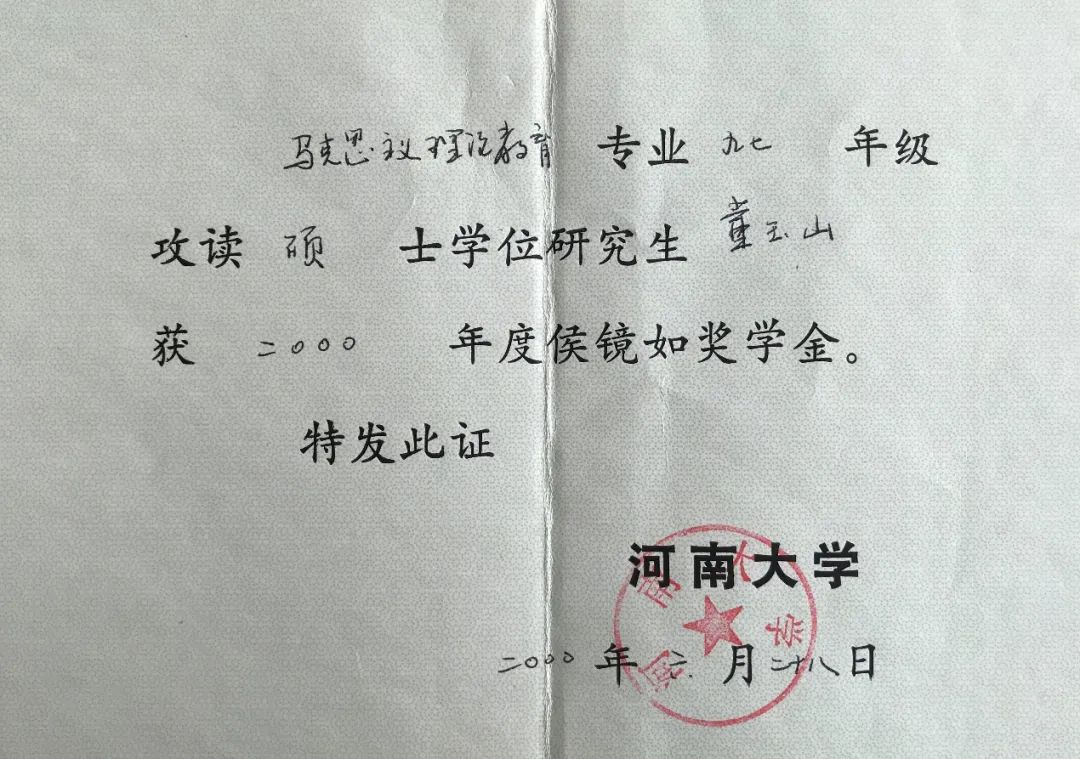 马克思主义理论教育 专业 九七 年级
攻读 硕 士学位研究生 董玉山
获 二〇〇〇 年度侯镜如奖学金。
特发此证
河南大学
河南大学
二〇〇〇 年 六 月 二十八 日